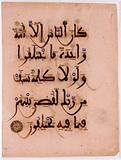 كان الناس إلا أمة
واحدة فاختلفوا
ولولا كلمة سبقت
من ربك لقضي بينهم
فيما فيه يختلفون